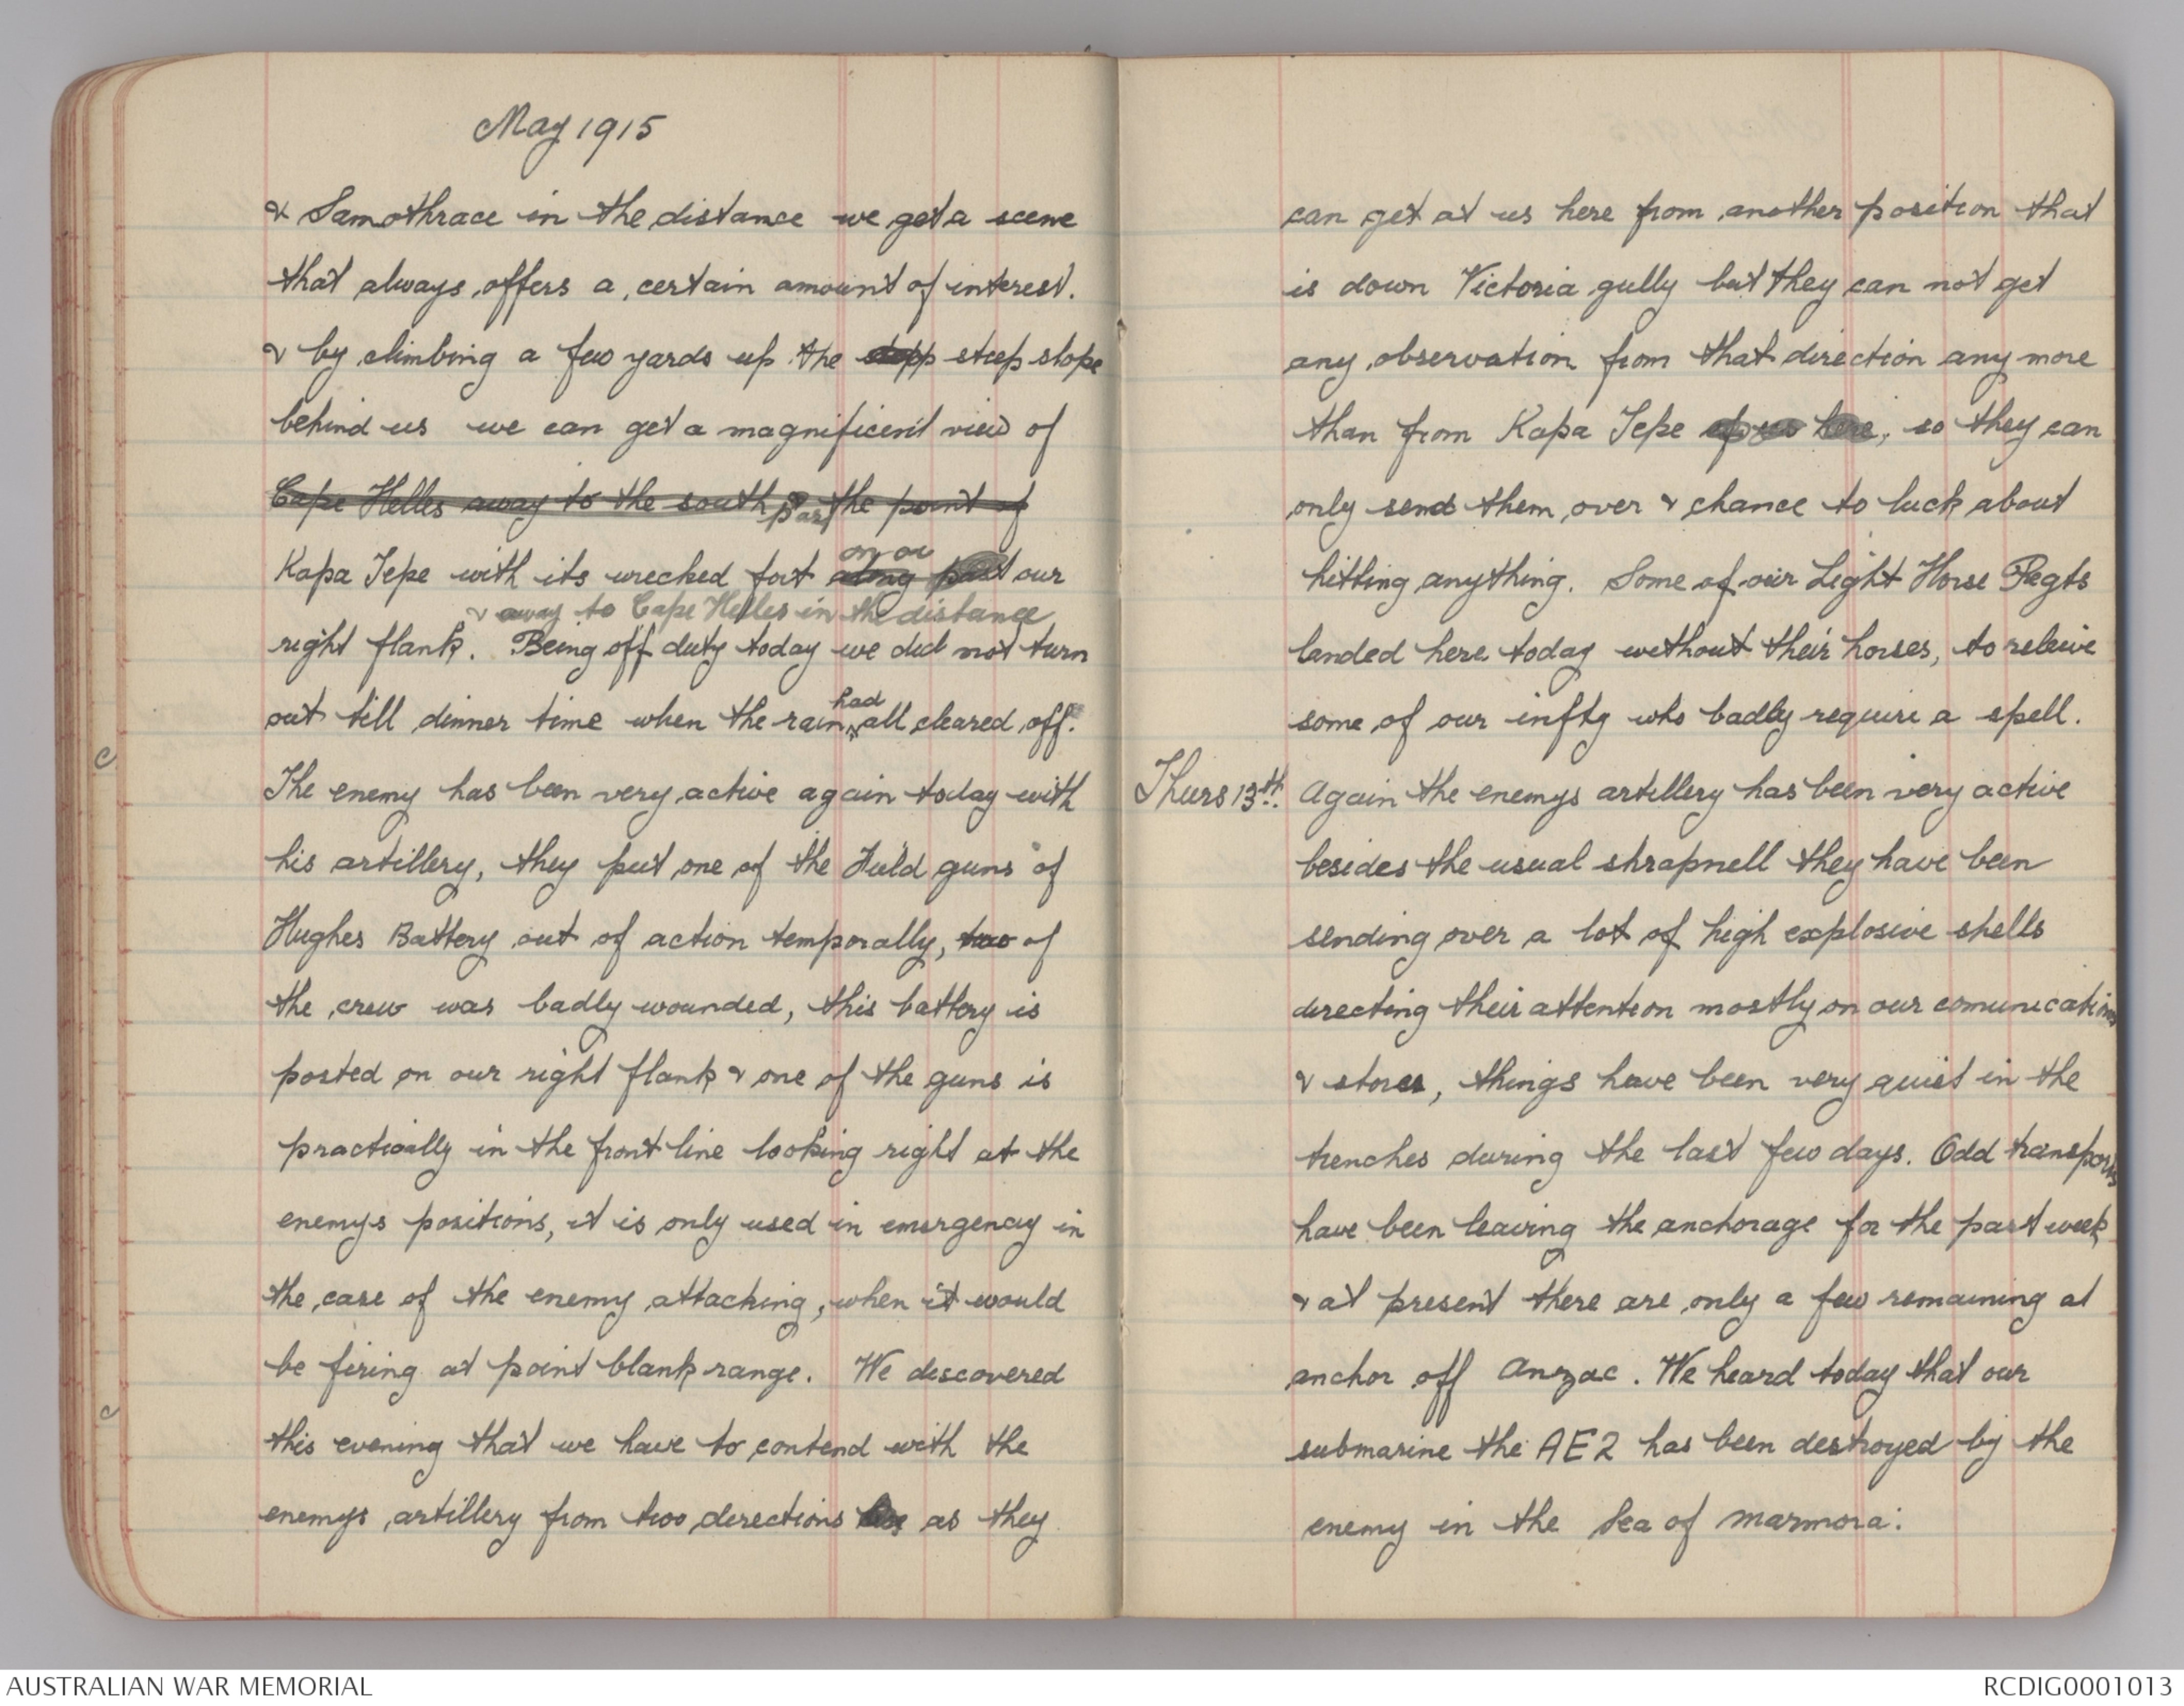 May 1915
& Samothrace in the distance we get a scene
that always offers a certain amount of interest.
& by climbing a few yards up the stepp steep slope
behind us we can get a magnificent view of
Cape Helles away to the south & the point of
past
on our
Kapa Tepe with its wrecked fort along past our
& away to Cape Helles in the distance
right flank. Being off duty today we did not turn
had
out till dinner time when the rain all cleared off.
The enemy has been very active again today with
his artillery, they put one of the Field guns of
Hughes Battery out of action temporally, two of
the crew was badly wounded, this battery is
posted on our right flank & one of the guns is
practically in the front line looking right at the
enemys positions, it is only used in emergency in
the case of the enemy attacking, when it would
be firing at point blank range. We discovered
this evening that we have to contend with the
enemys artillery from two directions here as they
can get at us here from another position that
is down Victoria gully but they can not get
any observation from that direction any more
than from Kapa Tepe of us here, so they can
only send them over & chance to luck about
hitting anything. Some of our Light Horse Regts
landed here today without their horses, to releive
some of our infty who badly require a spell.
Thurs 13th. Again the enemys artillery has been very active
besides the usual shrapnell they have been
sending over a lot of high explosive shells
directing their attention mostly on our comunications
& stores, things have been very quiet in the
trenches during the last few days. Odd transports
have been leaving the anchorage for the past week
& at present there are only a few remaining at
anchor off Anzac. We heard today that our
submarine the AE2 has been destroyed by the
enemy in the Sea of Marmora.
AUSTRALIAN WAR MEMORIAL
RCDIG0001013